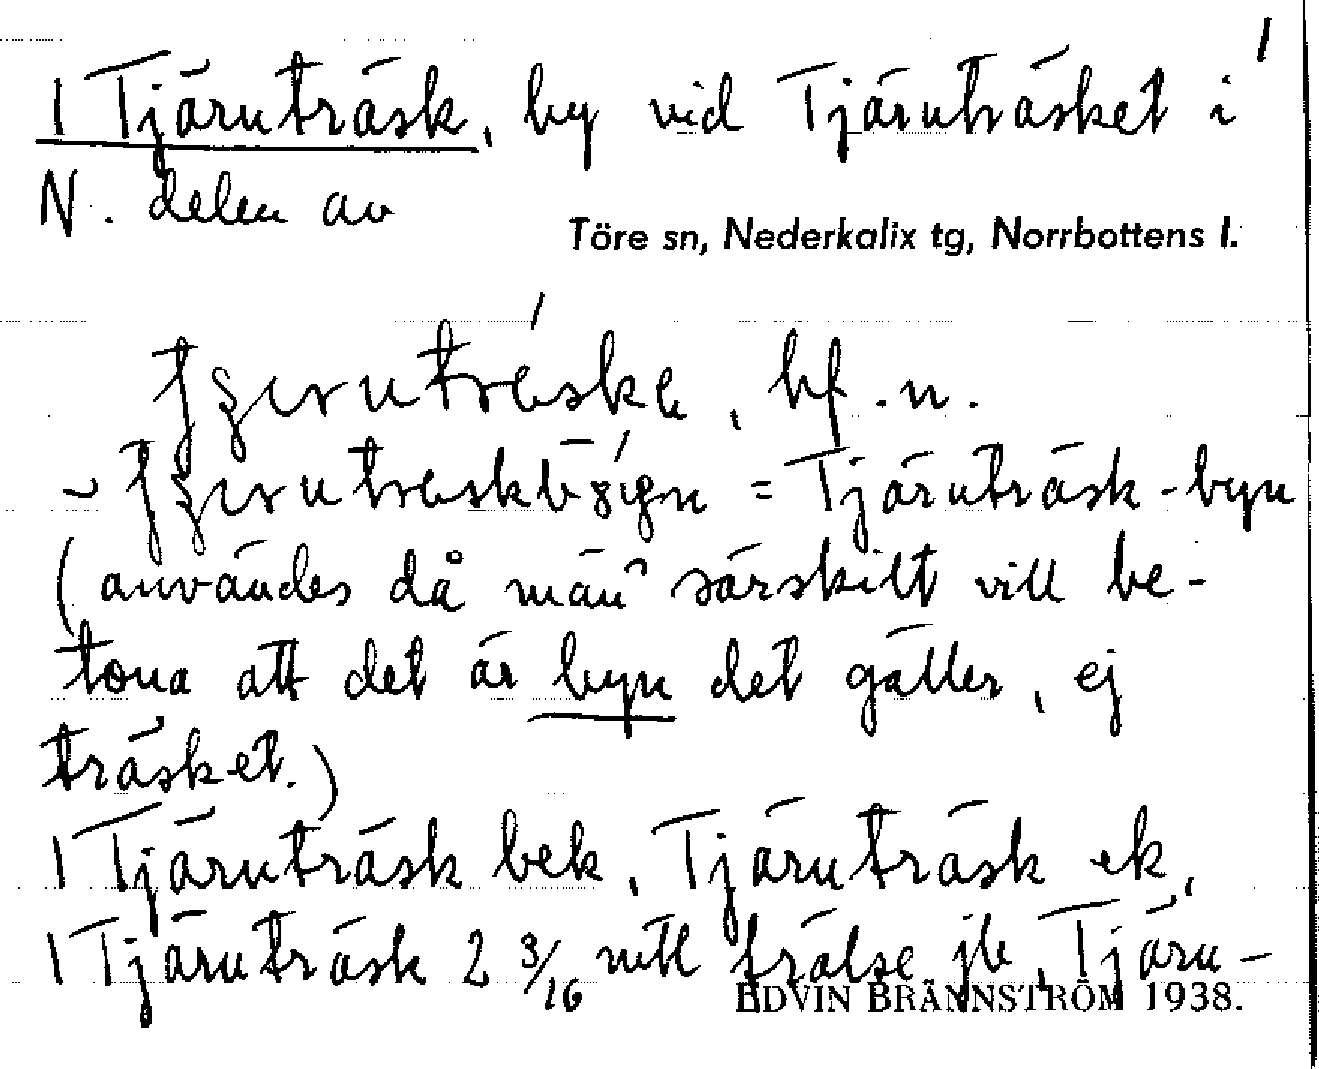 1
1 Tjärnträsk, by vid Tjärnträsket i
N. delen av
Töre sn, Nederkalix tg, Norrbottens l.
, bf. n.
= Tjärnträsk-byn
(användes då man särskilt vill be-
tona att det är byn det gäller, ej
träsket.)
1 Tjärnträsk bek, Tjärnträsk ek,
1 Tjärnträsk 2 3/16 mtl frälse jb, Tjärn-
EDVIN BRÄNNSTRÖM 1938.